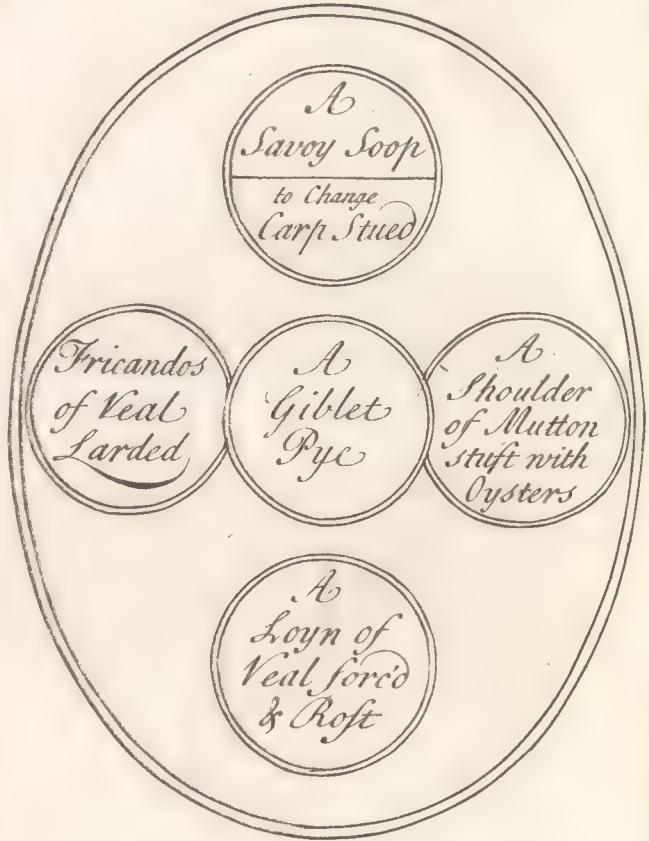 A
Savoy Soop
to Change
Carp Stued
Fricandos
of Veal
Larded
A
Giblet
Pye
A
Shoulder
of Mutton
stuft with
Oysters
A
Loyn of
Veal forc'd
& Roſt